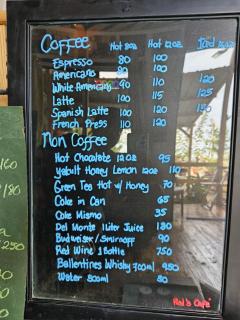 Coffee Hot 8oz Hot 12oz Iced
Espresso 80 100
Americano 80 100
White Americano 90 110 120
Latte 100 115 125
Spanish Latte 100 120
French Press 110 120
Non Coffee
Hot Chocolate 12oz 95
Yabult Honey Lemon 12oz 110
Green Tea Hot w/ Honey 70
Coke in Can 65
Coke Mismo 35
Del Monte 1 Liter Juice 180
Budweiser / Smirnoff 90
Red Wine 1 Bottle 750
Ballentines Whisky 700ml 950
Water 500ml 50
Hal's Cafe
160
180
250